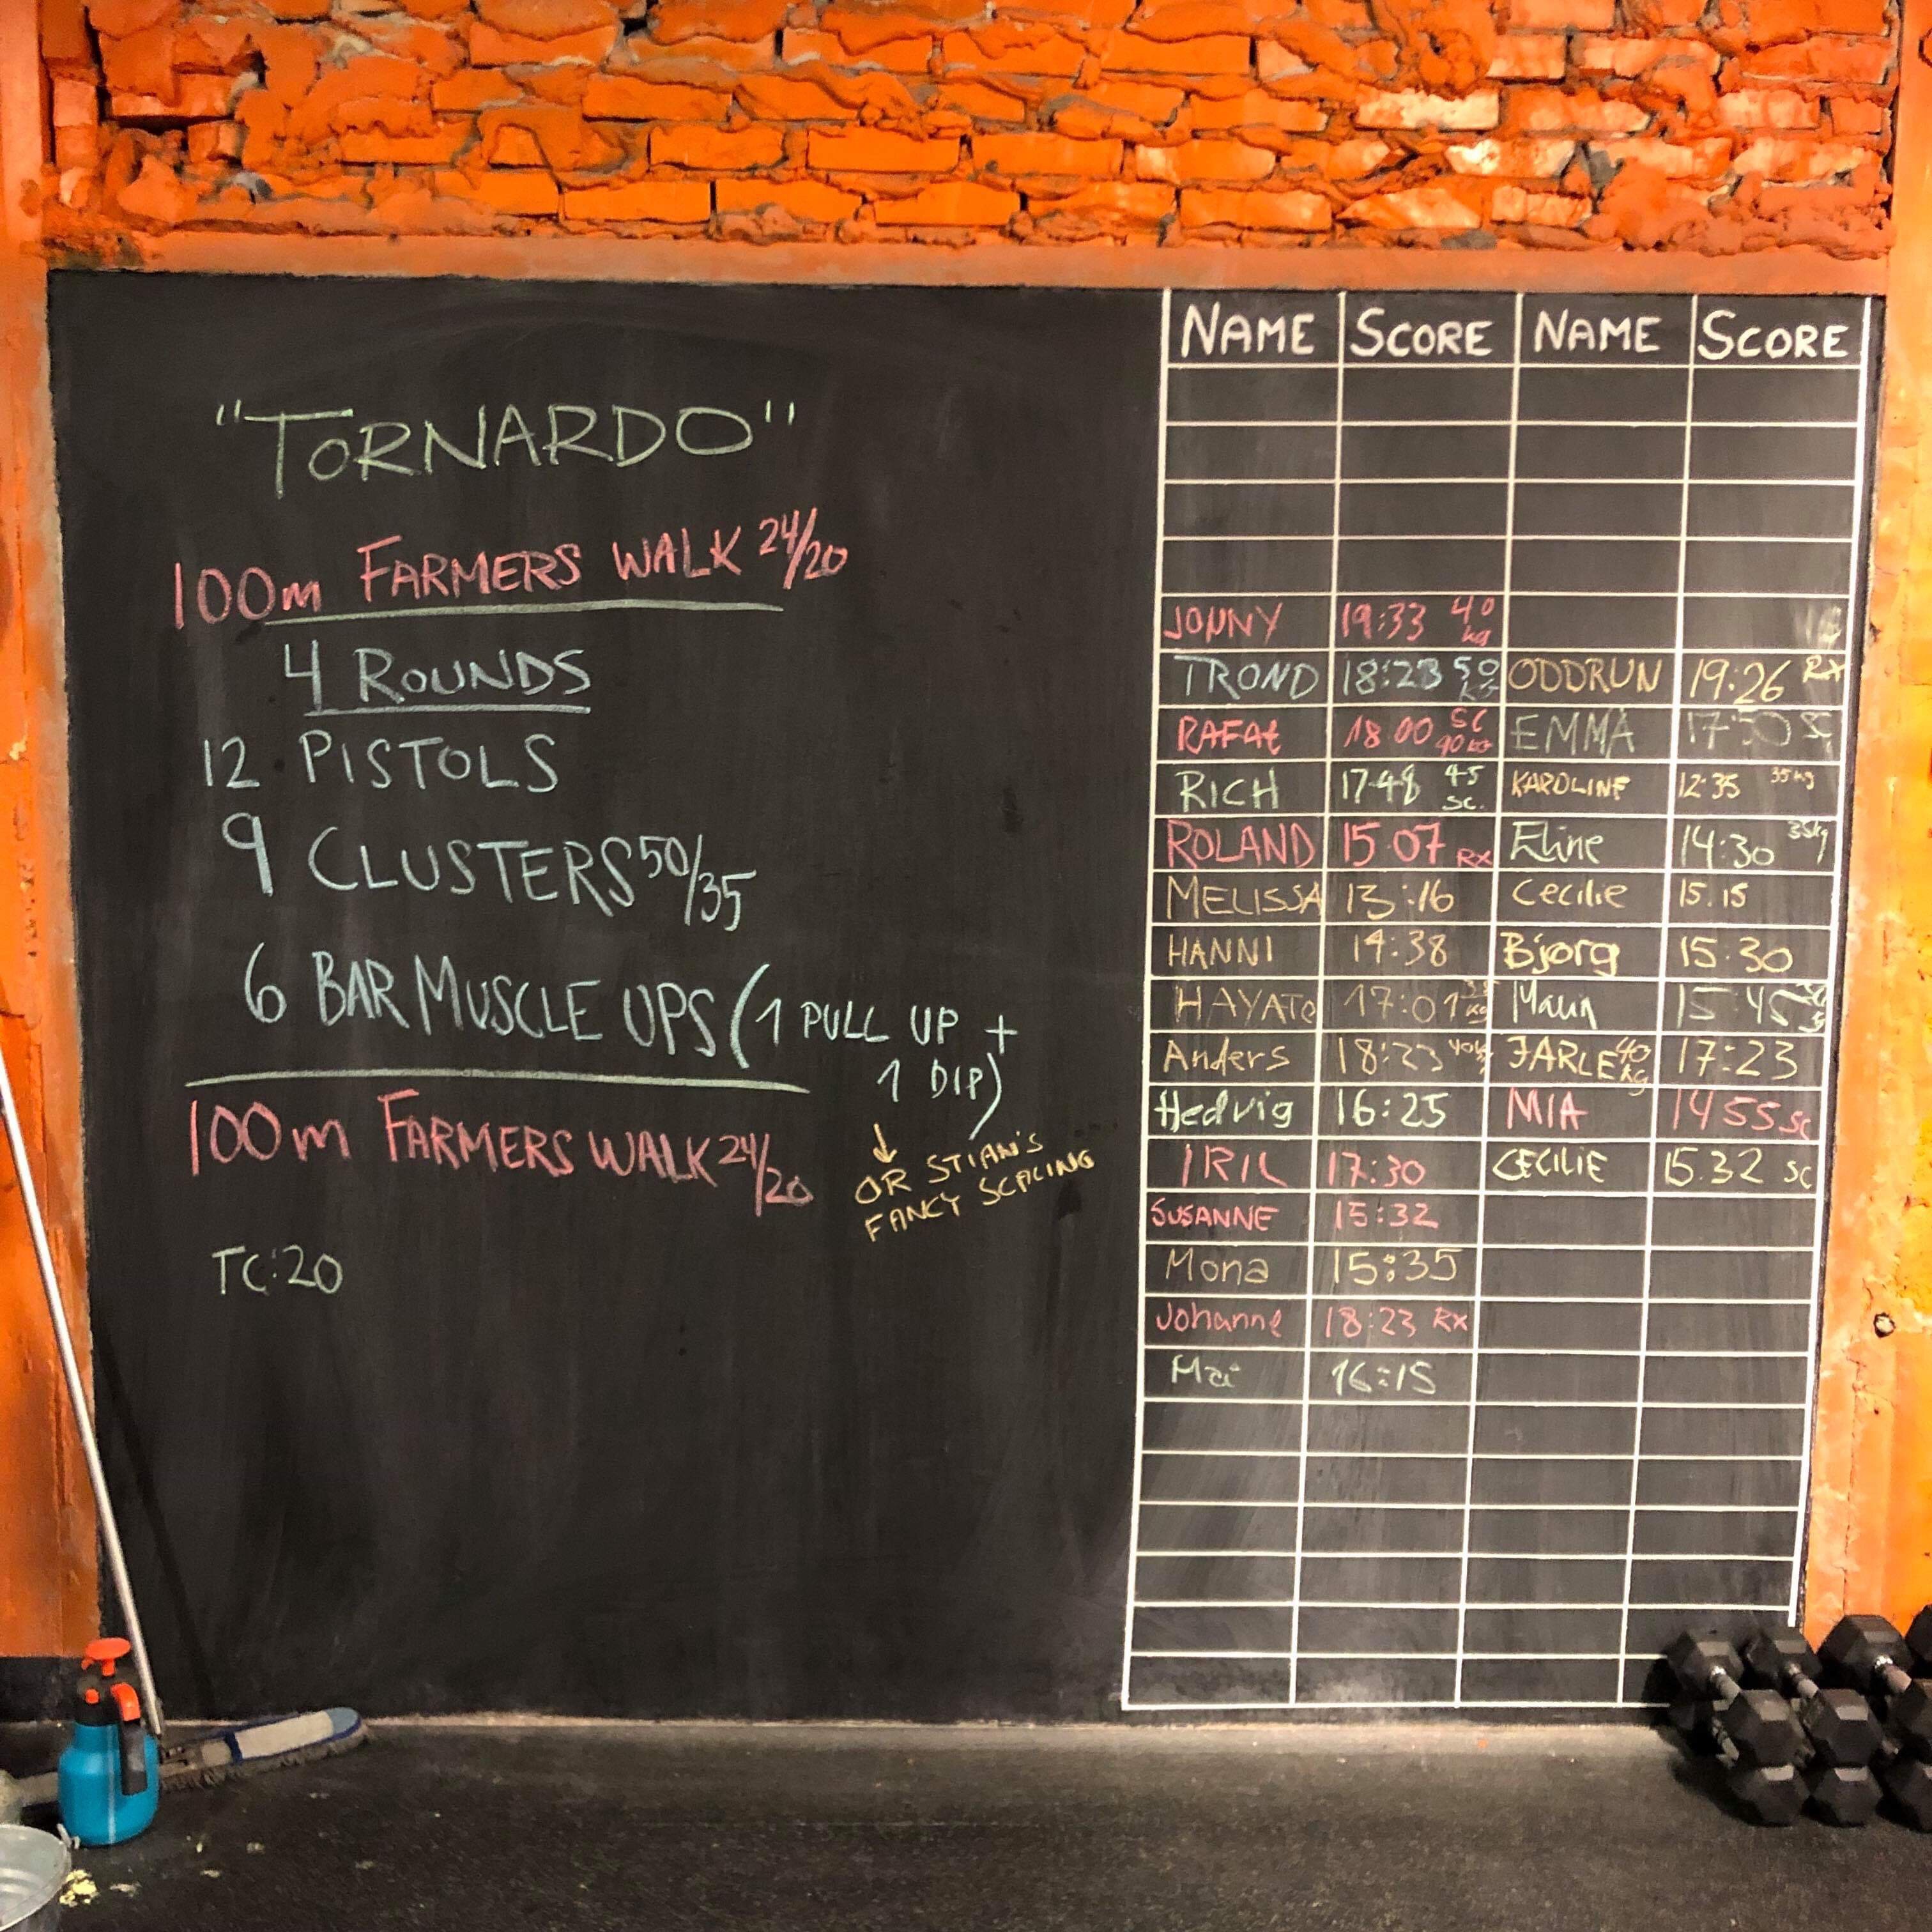 "TORNARDO"
100m FARMERS WALK 24/20
4 ROUNDS
12 PISTOLS
9 CLUSTERS 50/35
6 BAR MUSCLE UPS (1 PULL UP +
1 DIP)
↓
OR STIAN'S
FANCY SCALING
100m FARMERS WALK 24/20
TC:20
NAME SCORE NAME SCORE
JONNY 19:33 40 kg
TROND 18:23 50 KG ODDRUN 19:26 RX
RAFAŁ 18 00 SC 40 KG EMMA 17:50 SC
RICH 17.48 45 SC. KAROLINE 12:35 35kg
ROLAND 15.07 RX Eline 14:30 35kg
MELISSA 13:16 Cecilie 15.15
HANNI 14:38 Bjørg 15.30
HAYATO 17:01 kg 15:45
Anders 18:23 40kg JARLE 40 kg 17:23
Hedvig 16:25 MIA 14 55 sc
IRIL 17:30 CECILIE 15.32 sc
SUSANNE 15:32
Mona 15:35
Johanne 18:23 RX
Mai 16:15